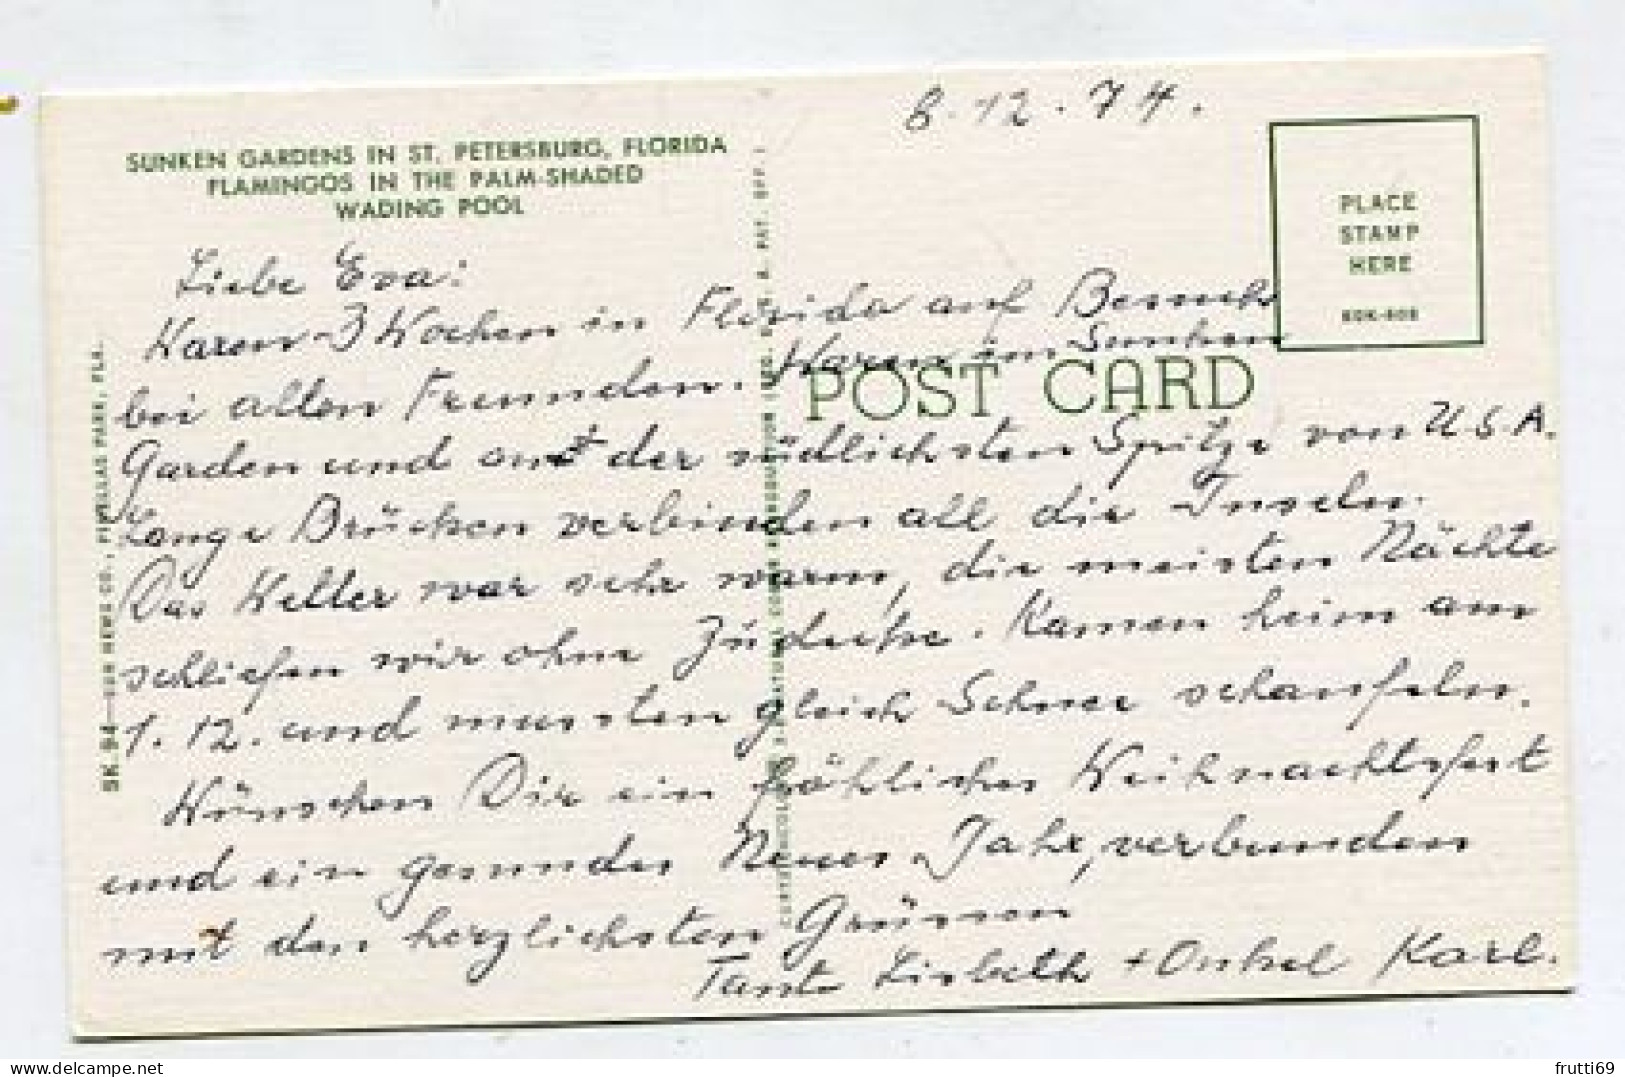 8.12.74.
SUNKEN GARDENS IN ST. PETERSBURG, FLORIDA
FLAMINGOS IN THE PALM-SHADED
WADING POOL
PLACE
STAMP
HERE
60K-608
POST CARD
Liebe Eva:
Waren 3 Wochen in Florida auf Besuch
bei allen Freunden. Waren im Sunken
Garden und auf der südlichsten Spitze von U.S.A.
Lange Brücken verbinden all die Inseln.
Das Wetter war sehr warm, die meisten Nächte
schliefen wir ohne Zudecke. Kamen heim am
1. 12. und mussten gleich Schnee schaufeln.
Wünschen Dir ein fröhliches Weihnachtsfest
und ein gesundes Neues Jahr, verbunden
mit den herzlichsten Grüssen
Tante Lisbeth + Onkel Karl.
SK.94—SUN NEWS CO., PINELLAS PARK, FLA.
frutti69